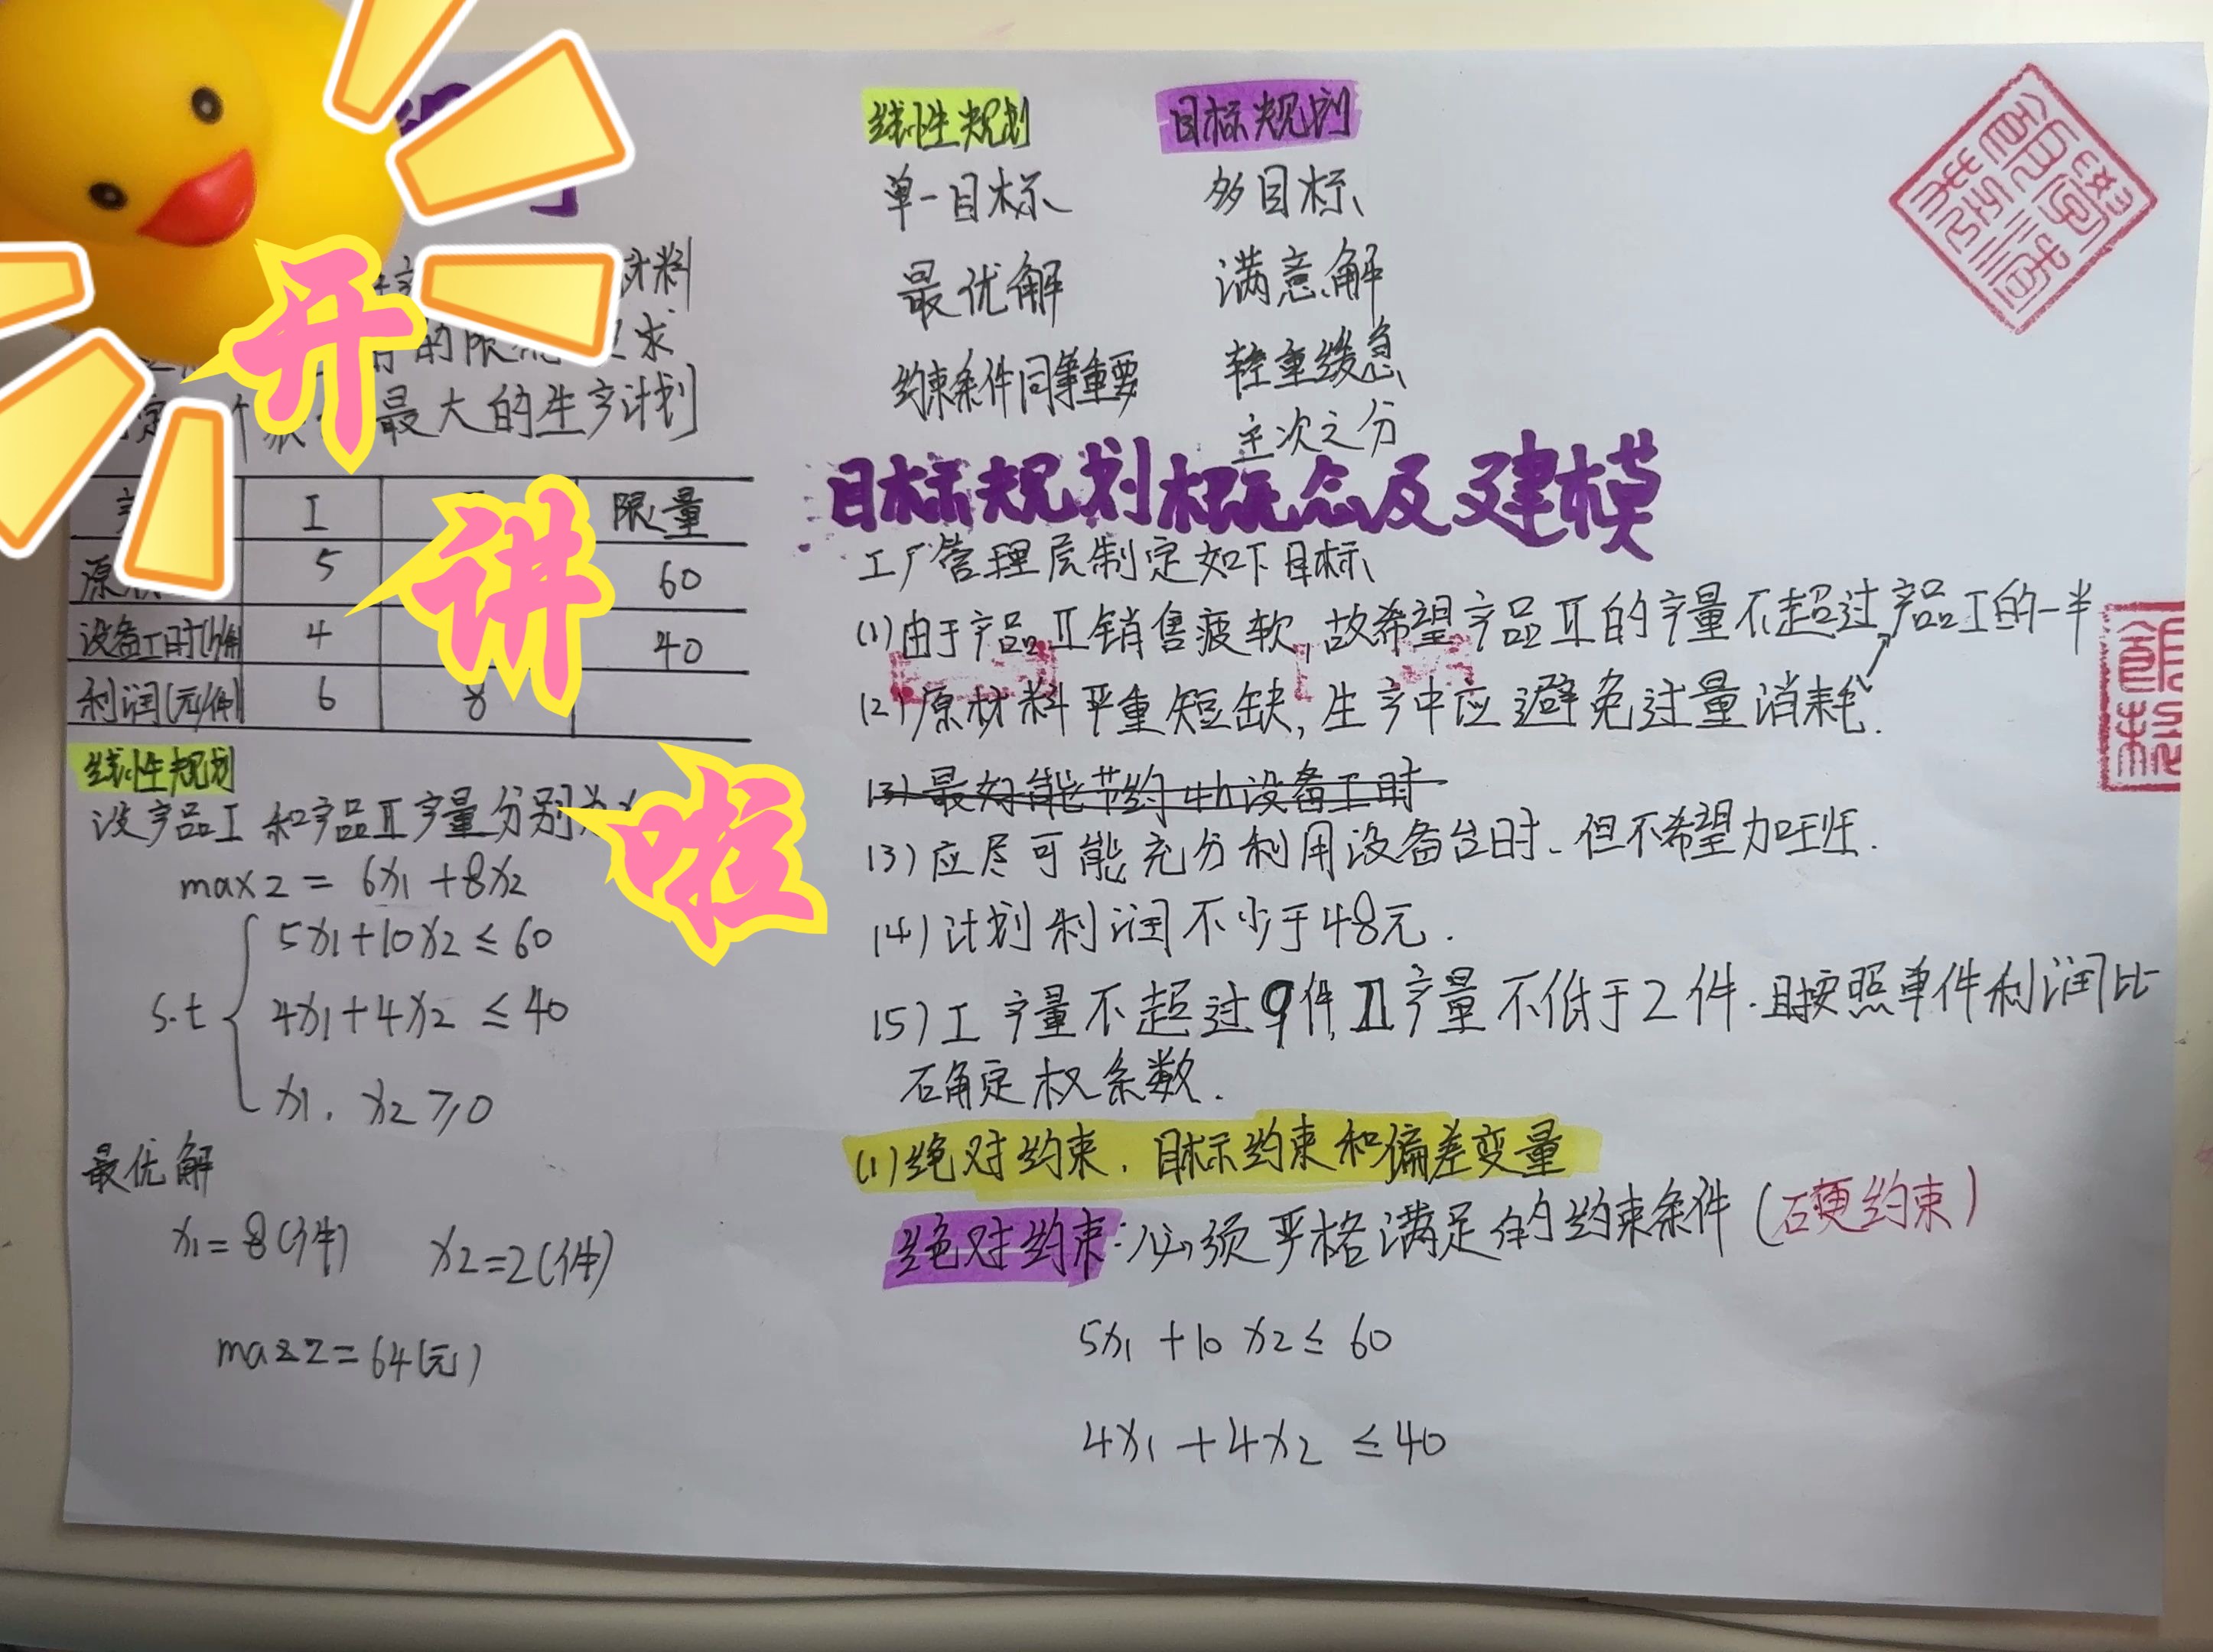 开
讲
啦
材料
的限 求
最大的生产计划
I 限量
原 5 60
设备工时(h/件) 4 40
利润(元/件) 6 8
线性规划
设产品I和产品II产量分别为x
max z = 6x1+8x2
s.t
5x1+10x2≤60
4x1+4x2≤40
x1, x2≥0
最优解
x1=8(件) x2=2(件)
max z=64(元)
线性规划 目标规划
单一目标 多目标
最优解 满意解
约束条件同等重要 轻重缓急
主次之分
目标规划概念及建模
工厂管理层制定如下目标
(1)由于产品II销售疲软,故希望产品II的产量不超过产品I的一半
(2)原材料严重短缺,生产中应避免过量消耗.
(3)最好能节约4h设备工时
(3)应尽可能充分利用设备台时.但不希望加班.
(4)计划利润不少于48元.
(5)I产量不超过9件,II产量不低于2件.且按照单件利润比
确定权系数.
(1)绝对约束.目标约束和偏差变量
绝对约束:必须严格满足的约束条件(硬约束)
5x1+10x2≤60
4x1+4x2≤40